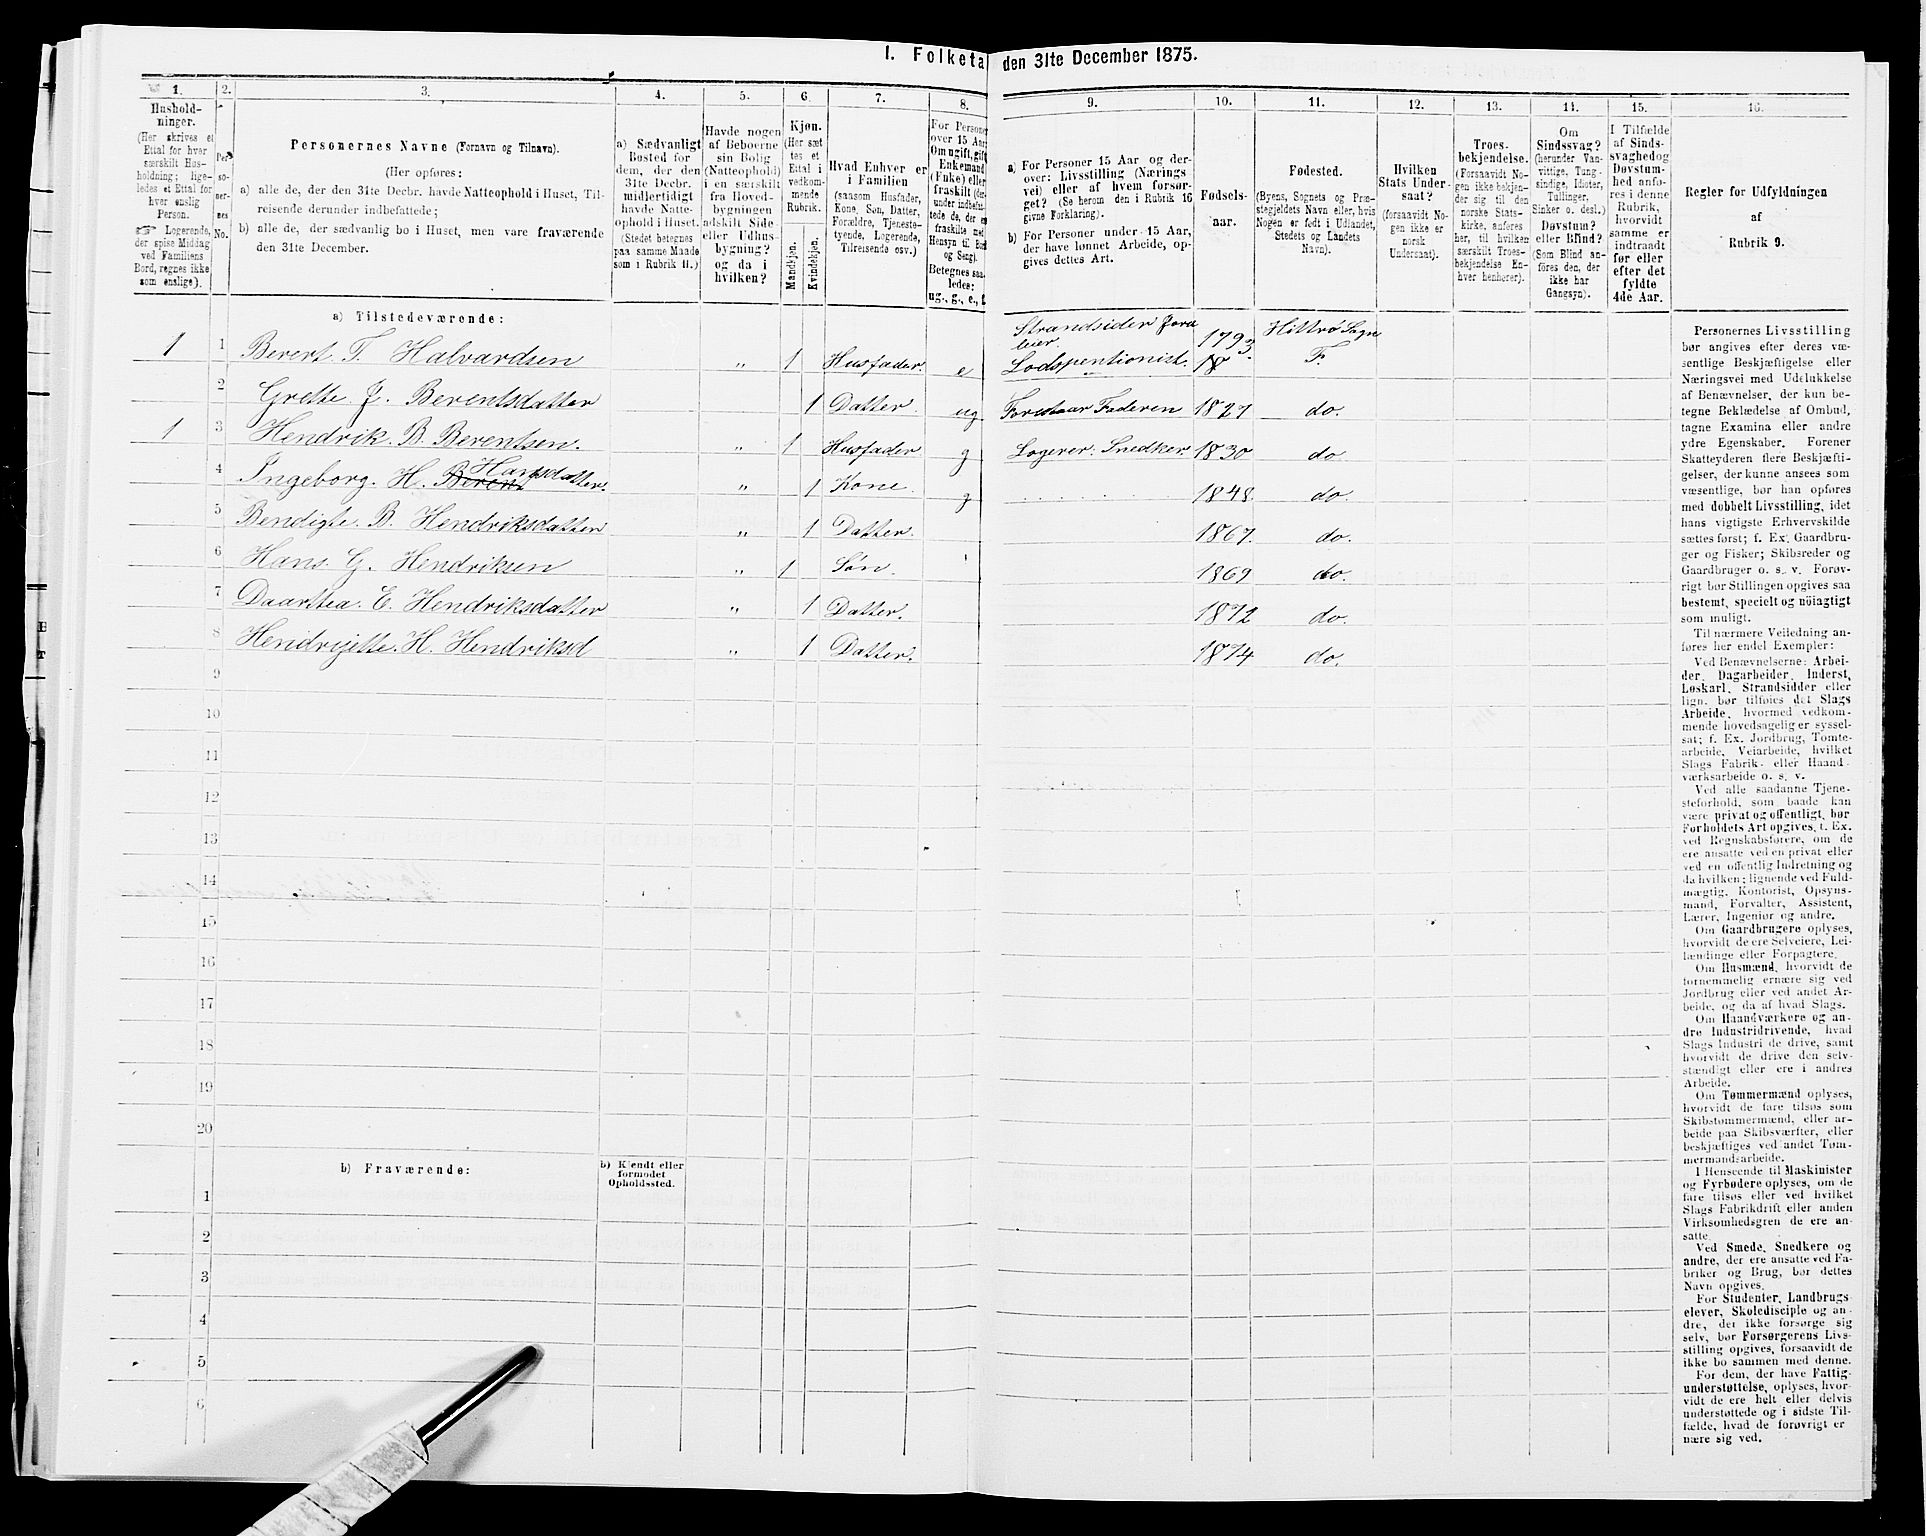 1. Folketa den 31te December 1875.
1.
2.
3.
4.
5.
6.
7.
8.
9.
10.
11.
12.
13.
14.
15.
16.
Hushold-
ninger.
(Her skrives et
Ettal for hver
særskilt Hus-
holdning; lige-
ledes et Ettal for
hver enslig
Person.
Logerende,
der spise Middag
ved Familiens
Bord, regnes ikke
som enslige).
Per-
so-
ner-
nes
No.
Personernes Navne (Fornavn og Tilnavn).
(Her opføres:
a) alle de, der den 31te Decbr. havde Natteophold i Huset, Til-
reisende derunder indbefattede;
b) alle de, der sædvanlig bo i Huset, men vare fraværende
den 31te December.
a) Sædvanligt
Bosted for
dem, der den
31te Decbr.
midlertidigt
havde Natte-
ophold i Huset.
(Stedet betegnes
paa samme Maade
som i Rubrik 11.)
Havde nogen
af Beboerne
sin Bolig
(Natteophold)
i en særskilt
fra Hoved-
bygningen
adskilt Side-
eller Udhus-
bygning?
og da i
hvilken?
Kjøn.
(Her sæt
tes et
Ettal i
vedkom-
mende
Rubrik.
Mandkjøn.
Kvindekjøn.
Hvad Enhver er
i Familien
(saasom Husfader,
Kone, Søn, Datter,
Forældre, Tjeneste-
tyende, Logerende,
Tilreisende osv.)
For Persone
over 15 Aar
Om ugift, gift
Enkemand
(Enke) eller
fraskilt (der-
under indbefat-
tede de, der e
fraskilte med
Hensyn til Bord
og Seng).
Betegnes saa-
ledes:
ug., g., e., f.
a) For Personer 15 Aar og der-
over: Livsstilling (Nærings
vei) eller af hvem forsør-
get? (Se herom den i Rubrik 16
givne Forklaring).
b) For Personer under 15 Aar,
der have lønnet Arbeide, op-
gives dettes Art.
Fødsels-
aar.
Fødested.
(Byens, Sognets og Præ-
stegjeldets Navn eller, hvis
Nogen er født i Udlandet,
Stedets og Landets
Navn).
Hvilken
Stats Under-
saat?
(forsaavidt No-
gen ikke er
norsk
Undersaat).
Troes-
bekjendelse.
(Forsaavidt No-
gen ikke bekjen-
der sig til den
norske Stats-
kirke, anføres
her, til hvilken
særskilt Troes-
bekjendelse En-
hver henhører).
Om
Sindssvag?
(herunder Van-
vittige, Tung-
sindige, Idioter,
Tullinger,
Sinker o. desl.)
Døvstum?
eller Blind?
(Som Blind an-
føres den, der
ikke har
Gangsyn).
I Tilfælde
af Sinds-
svaghed og
Døvstum-
hed anfø-
res i denne
Rubrik,
hvorvidt
samme er
indtraadt
før eller
efter det
fyldte
4de Aar.
Regler for Udfyldningen
af
Rubrik 9.
a) Tilstedeværende:
1 1 Berent T. Halvardsen " 1 Husfader e Strandsider Lodspentionist. 1793 Hittrø Sogn F.
2 Grette J. Berentsdatter 1 Datter. ug Faderen 1827 do.
1 3 Hendrik. B. Berentsen. " 1 Husfader g Logerer. Snedker 1830 do.
4 Ingeborg. H. Hansdatter. " 1 Kone. g 1848. do.
5 Bendigte. B. Hendriksdatter " 1 Datter. 1867. do.
6 Hans. G. Hendriksen " 1 Søn. 1869 do.
7 Daarthea. E. Hendriksdatter " 1 Datter. 1872 do.
8 Hendrijette. H. Hendriksd " 1 Datter. 1874 do.
9
10
11
12
13
14
15
16
17
18
19
20
b) Fraværende:
b) Kjendt eller
formodet
Opholdssted.
1
2
3
4
5
6
Personernes Livsstilling
bør angives efter deres væ-
sentlige Beskjæftigelse eller
Næringsvei med Udelukkelse
af Benævnelser, der kun be-
tegne Beklædelse af Ombud,
tagne Examina eller andre
ydre Egenskaber. Forener
Skatteyderen flere Beskjæfti-
gelser, der kunne ansees som
væsentlige, bør han opføres
med dobbelt Livsstilling, idet
hans vigtigste Erhvervskilde
sættes først; f. Ex. Gaardbru-
ger og Fisker; Skibsreder og
Gaardbruger o. s. v. Forøv-
rigt bør Stillingen opgives saa
bestemt, specielt og nöiagtigt
som muligt.
Til nærmere Veiledning an-
føres her endel Exempler:
Ved Benævnelserne: Arbei-
der, Dagarbeider, Inderst,
Løskarl, Strandsidder eller
lign. bør tilføies det Slags
Arbeide, hvormed vedkom-
mende hovedsagelig er syssel-
sat; f. Ex. Jordbrug, Tomte-
arbeide, Veiarbeide, hvilket
Slags Fabrik- eller Haand-
værksarbeide o. s. v.
Ved alle saadanne Tjene-
steforhold, som baade kan
være privat og offentligt, bør
Forholdets Art opgives, t. Ex.
ved Regnskabsførere, om de
ere ansatte ved en privat eller
ved en offentlig Indretning og
da hvilken; lignende ved Fuld-
mægtig, Kontorist, Opsyns-
mand, Forvalter, Assistent,
Lærer, Ingeniør og andre.
Om Gaardbrugere oplyses,
hvorvidt de ere Selveiere, Lei-
lændinge eller Forpagtere.
Om Husmænd, hvorvidt de
fornemmelig ernære sig ved
Jordbrug eller ved andet Ar-
beide, og da af hvad Slags.
Om Haandværkere og an-
dre Industridrivende, hvad
Slags Industri de drive, samt
hvorvidt de drive den selv-
stændigt eller ere i andres
Arbeide.
Om Tømmermænd oplyses,
hvorvidt de fare tilsøs som
Skibstømmermænd, eller ar-
beide paa Skibsværfter, eller
beskjæftiges ved andet Tøm-
mermandsarbeide.
I Henseende til Maskinister
og Fyrbødere oplyses, om de
fare tilsøs eller ved hvilket
Slags Fabrikdrift eller anden
Virksomhedsgren de ere an-
satte.
Ved Smede, Snedkere og
andre, der ere ansatte ved Fa-
briker og Brug, bør dettes
Navn opgives.
For Studenter, Landbrugs-
elever, Skoledisciple og an-
dre, der ikke forsørge sig
selv, bør Forsørgerens Livs-
stilling opgives, forsaavidt de
ikke bo sammen med denne.
For dem, der have Fattig-
understøttelse, oplyses, hvor-
vidt de ere helt eller delvis
understøttede og i sidste Til-
fælde, hvad de forøvrigt er
nære sig ved.